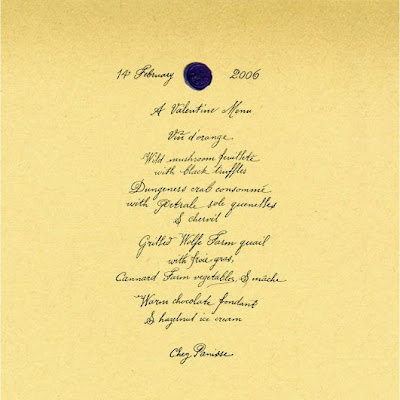 14 February 2006
A Valentine Menu
Vin d'orange
Wild mushroom feuilleté
with black truffles
Dungeness crab consommé
with Petrale sole quenelles
& chervil
Grilled Wolfe Farm quail
with foie gras,
Cannard Farm vegetables, & mâche
Warm chocolate fondant
& hazelnut ice cream
Chez Panisse